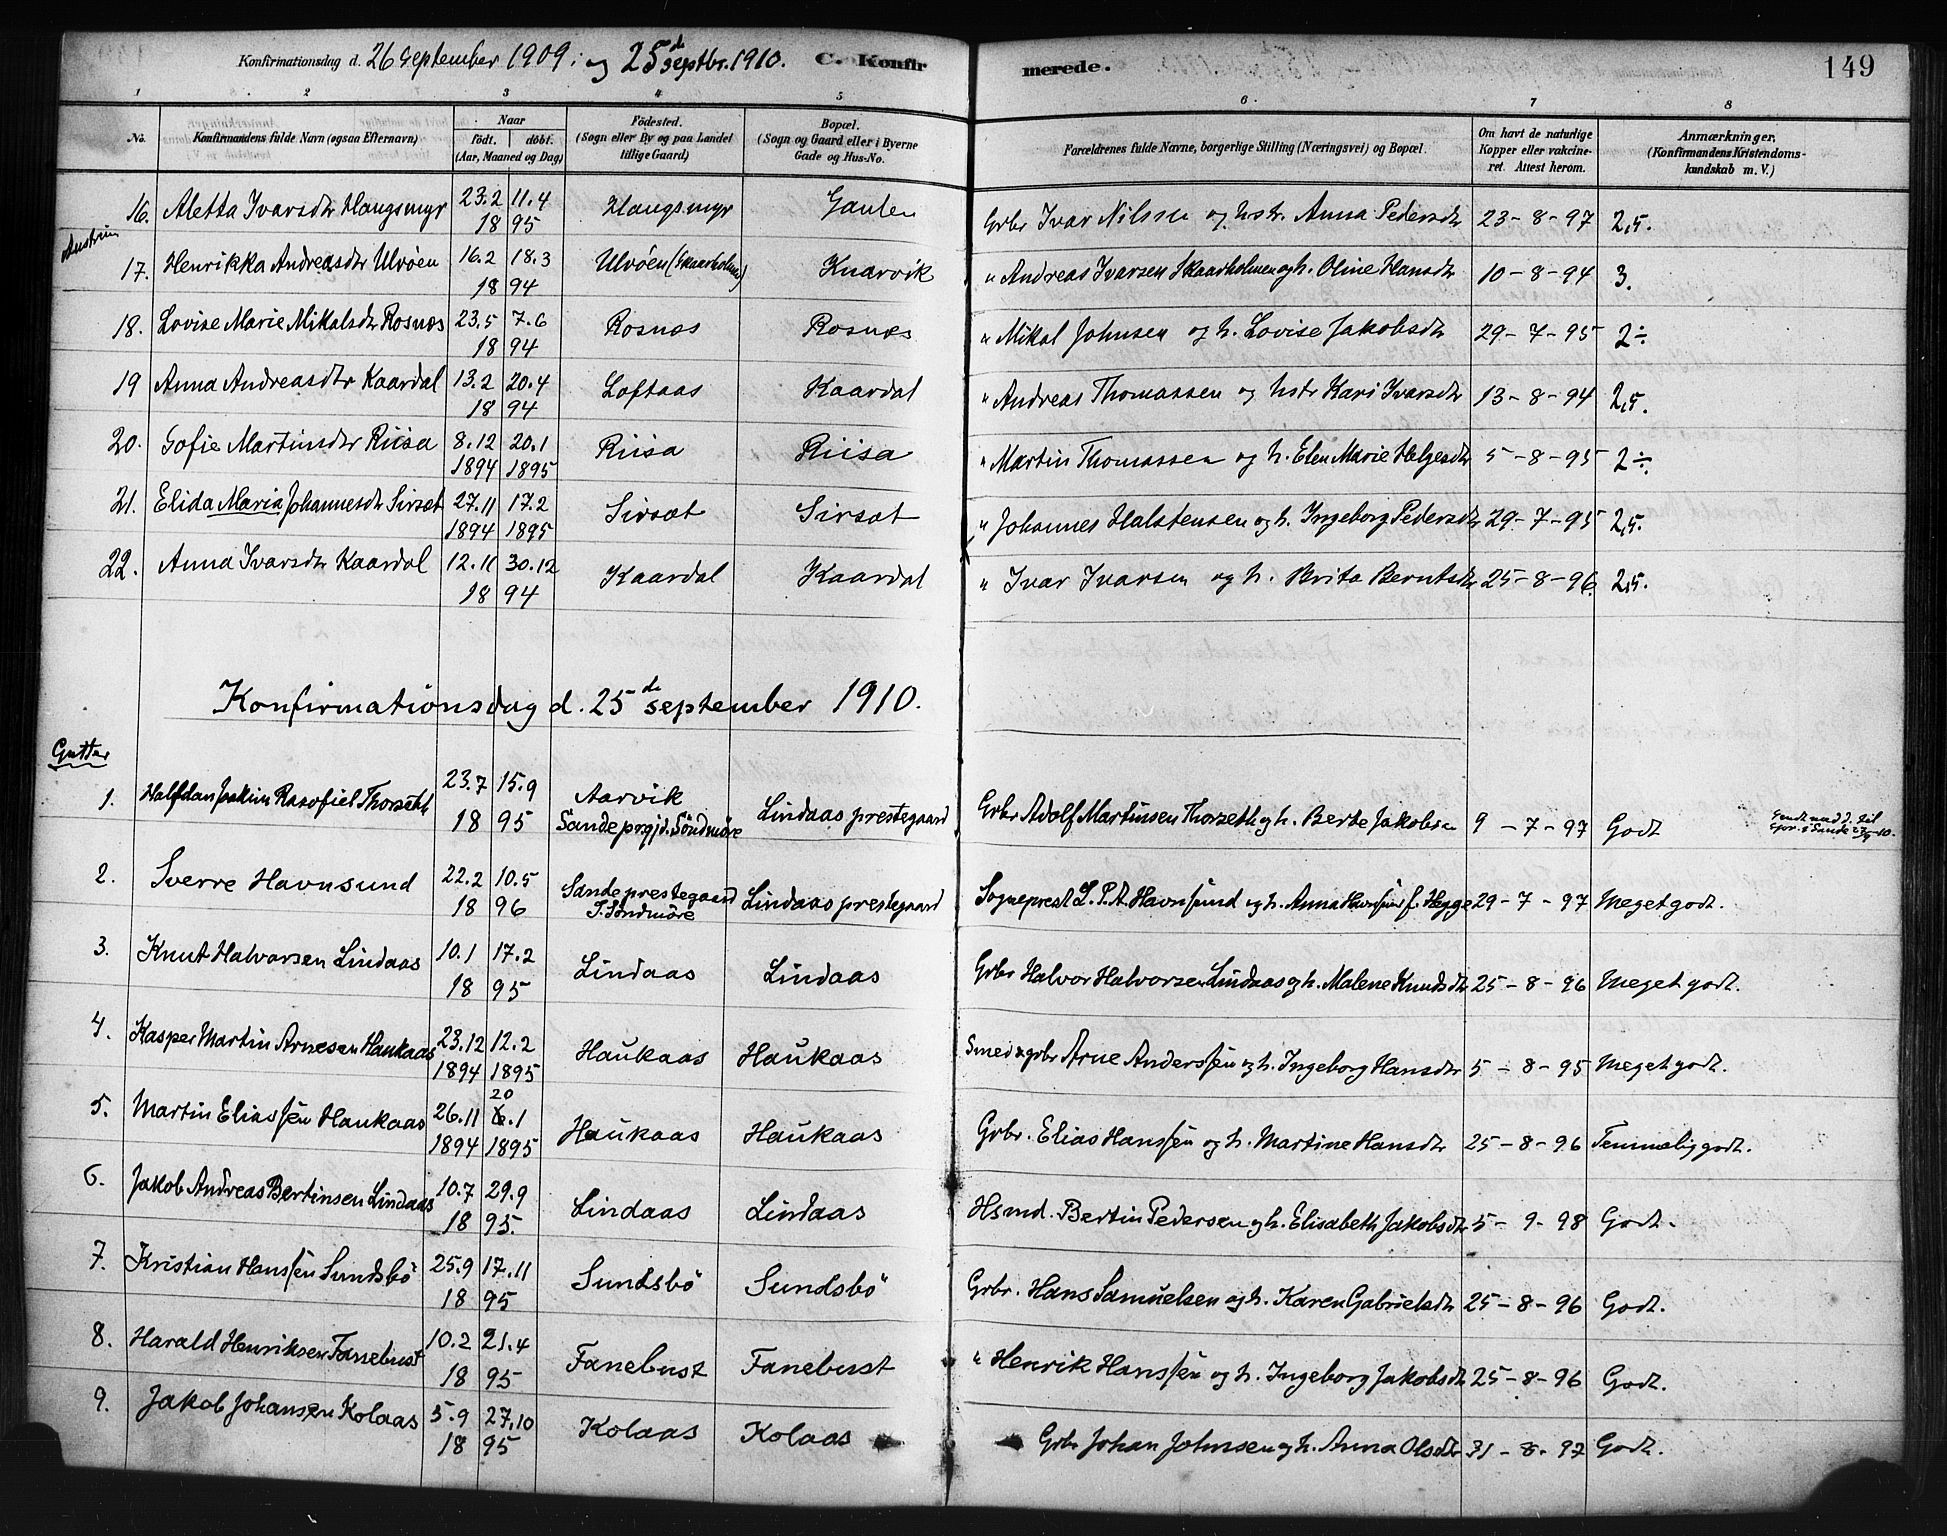 Konfirmationsdag d. 26 September 1909; og 25de septbr. 1910. C. Konfir
merede. 149
1 2 3 4 5 6 7 8
No. Konfirmandens fulde Navn (ogsaa Efternavn) Naar født. døbt. (Aar, Maaned og Dag) Fødested. (Sogn eller By og paa Landet tillige Gaard) Bopæl. (Sogn og Gaard eller i Byerne Gade og Hus-No. Forældrenes fulde Navne, borgerlige Stilling (Næringsvei) og Bopæl. Om havt de naturlige Kopper eller vaccineret. Attest herom. Anmærkninger, (Konfirmandens Kristendomskundskab m. V.)
16. Aletta Ivarsdtr Haugsmyr 23.2 11.4 Haugsmyr Gaulen Grbr Ivar Nilssen og hstr. Anna Pedersdtr 23-8-97 2,5.
18 95
17. Henrikka Andreasdtr Ulvøen 16.2 18.3 Ulvøen (Skaarholmen) Knarvik " Andreas Ivarsen Skaarholmen og h. Oline Hansdtr 10-8-94 3.
18 94
18. Lovise Marie Mikalsdtr Rosnæs 23.5 7.6 Rosnæs Rosnæs " Mikal Johnsen og h. Lovise Jakobsdtr 29-7-95 2÷
18 94
19 Anna Andreasdtr Kaardal 13.2 20.4 Loftaas Kaardal " Andreas Thomassen og hstr Kari Ivarsdtr 13-8-94 2,5.
18 94
20. Sofie Martinsdtr Riisa 8.12 20.1 Riisa Riisa " Martin Thomassen og h. Elen Marie Helgesdtr 5-8-95 2÷.
1894 1895
21. Elida Maria Johannesdtr Sirsæt 27.11 17.2 Sirsæt Sirsæt " Johannes Halstensen og h. Ingeborg Pedersdtr 29-7-95 2,5.
1894 1895
22. Anna Ivarsdtr Kaardal 12.11 30.12 Kaardal Kaardal " Ivar Ivarsen og h. Brita Berntsdtr 25-8-96. 2,5.
18 94
Konfirmationsdag d. 25de september 1910.
Gutter
1. Halfdan Joakim Rasofiel Thorseth 23.7 15.9 Aarvik Lindaas prestegaard Grbr Adolf Martinsen Thorseth og h. Berte Jakobs 9-7-97 Godt
18 95 Sande prgjd. Söndmöre
2. Sverre Havnsund 22.2 10.5 Sande prestegaard Lindaas prestegaard Sogneprest L. P. A. Havnsund og h. Anna Havnsund f. Hegge 29-7-97 Meget godt.
18 96 S. Söndmöre
3. Knut Halvorsen Lindaas 10.1 17.2 Lindaas Lindaas Grbr Halvor Halvorsen Lindaas og h. Malene Knudsdtr 25-8-96 Meget godt.
18 95
4. Kasper Martin Arnesen Haukaas 23.12 12.2 Haukaas Haukaas Smed & grbr Arne Anderssen og h. Ingeborg Hansdtr 5-8-95 Meget godt.
1894 1895
5. Martin Eliassen Haukaas 26.11 20.1 Haukaas Haukaas Grbr. Elias Hanssen og h. Martine Hansdtr 25-8-96 Temmelig godt.
1894 1895
6. Jakob Andreas Bertinsen Lindaas 10.7 29.9 Lindaas Lindaas Hsmd. Bertin Pedersen og h. Elisabeth Jakobsdtr 5-9-98 Godt.
18 95.
7. Kristian Hanssen Sundsbö 25.9 17.11 Sundsbö Sundsbö Grbr. Hans Samuelsen og h. Karen Gabrielsdtr 25-8-96 Godt.
18 95
8. Harald Henriksen Fanebust 10.2 21.4 Fanebust Fanebust " Henrik Hanssen og h. Ingeborg Jakobsdtr 25-8-96 Godt.
18 95
9. Jakob Johansen Kolaas 5.9 27.10 Kolaas Kolaas Grbr Johan Johnsen og h. Anna Olsdtr 31-8-97 Godt.
18 95